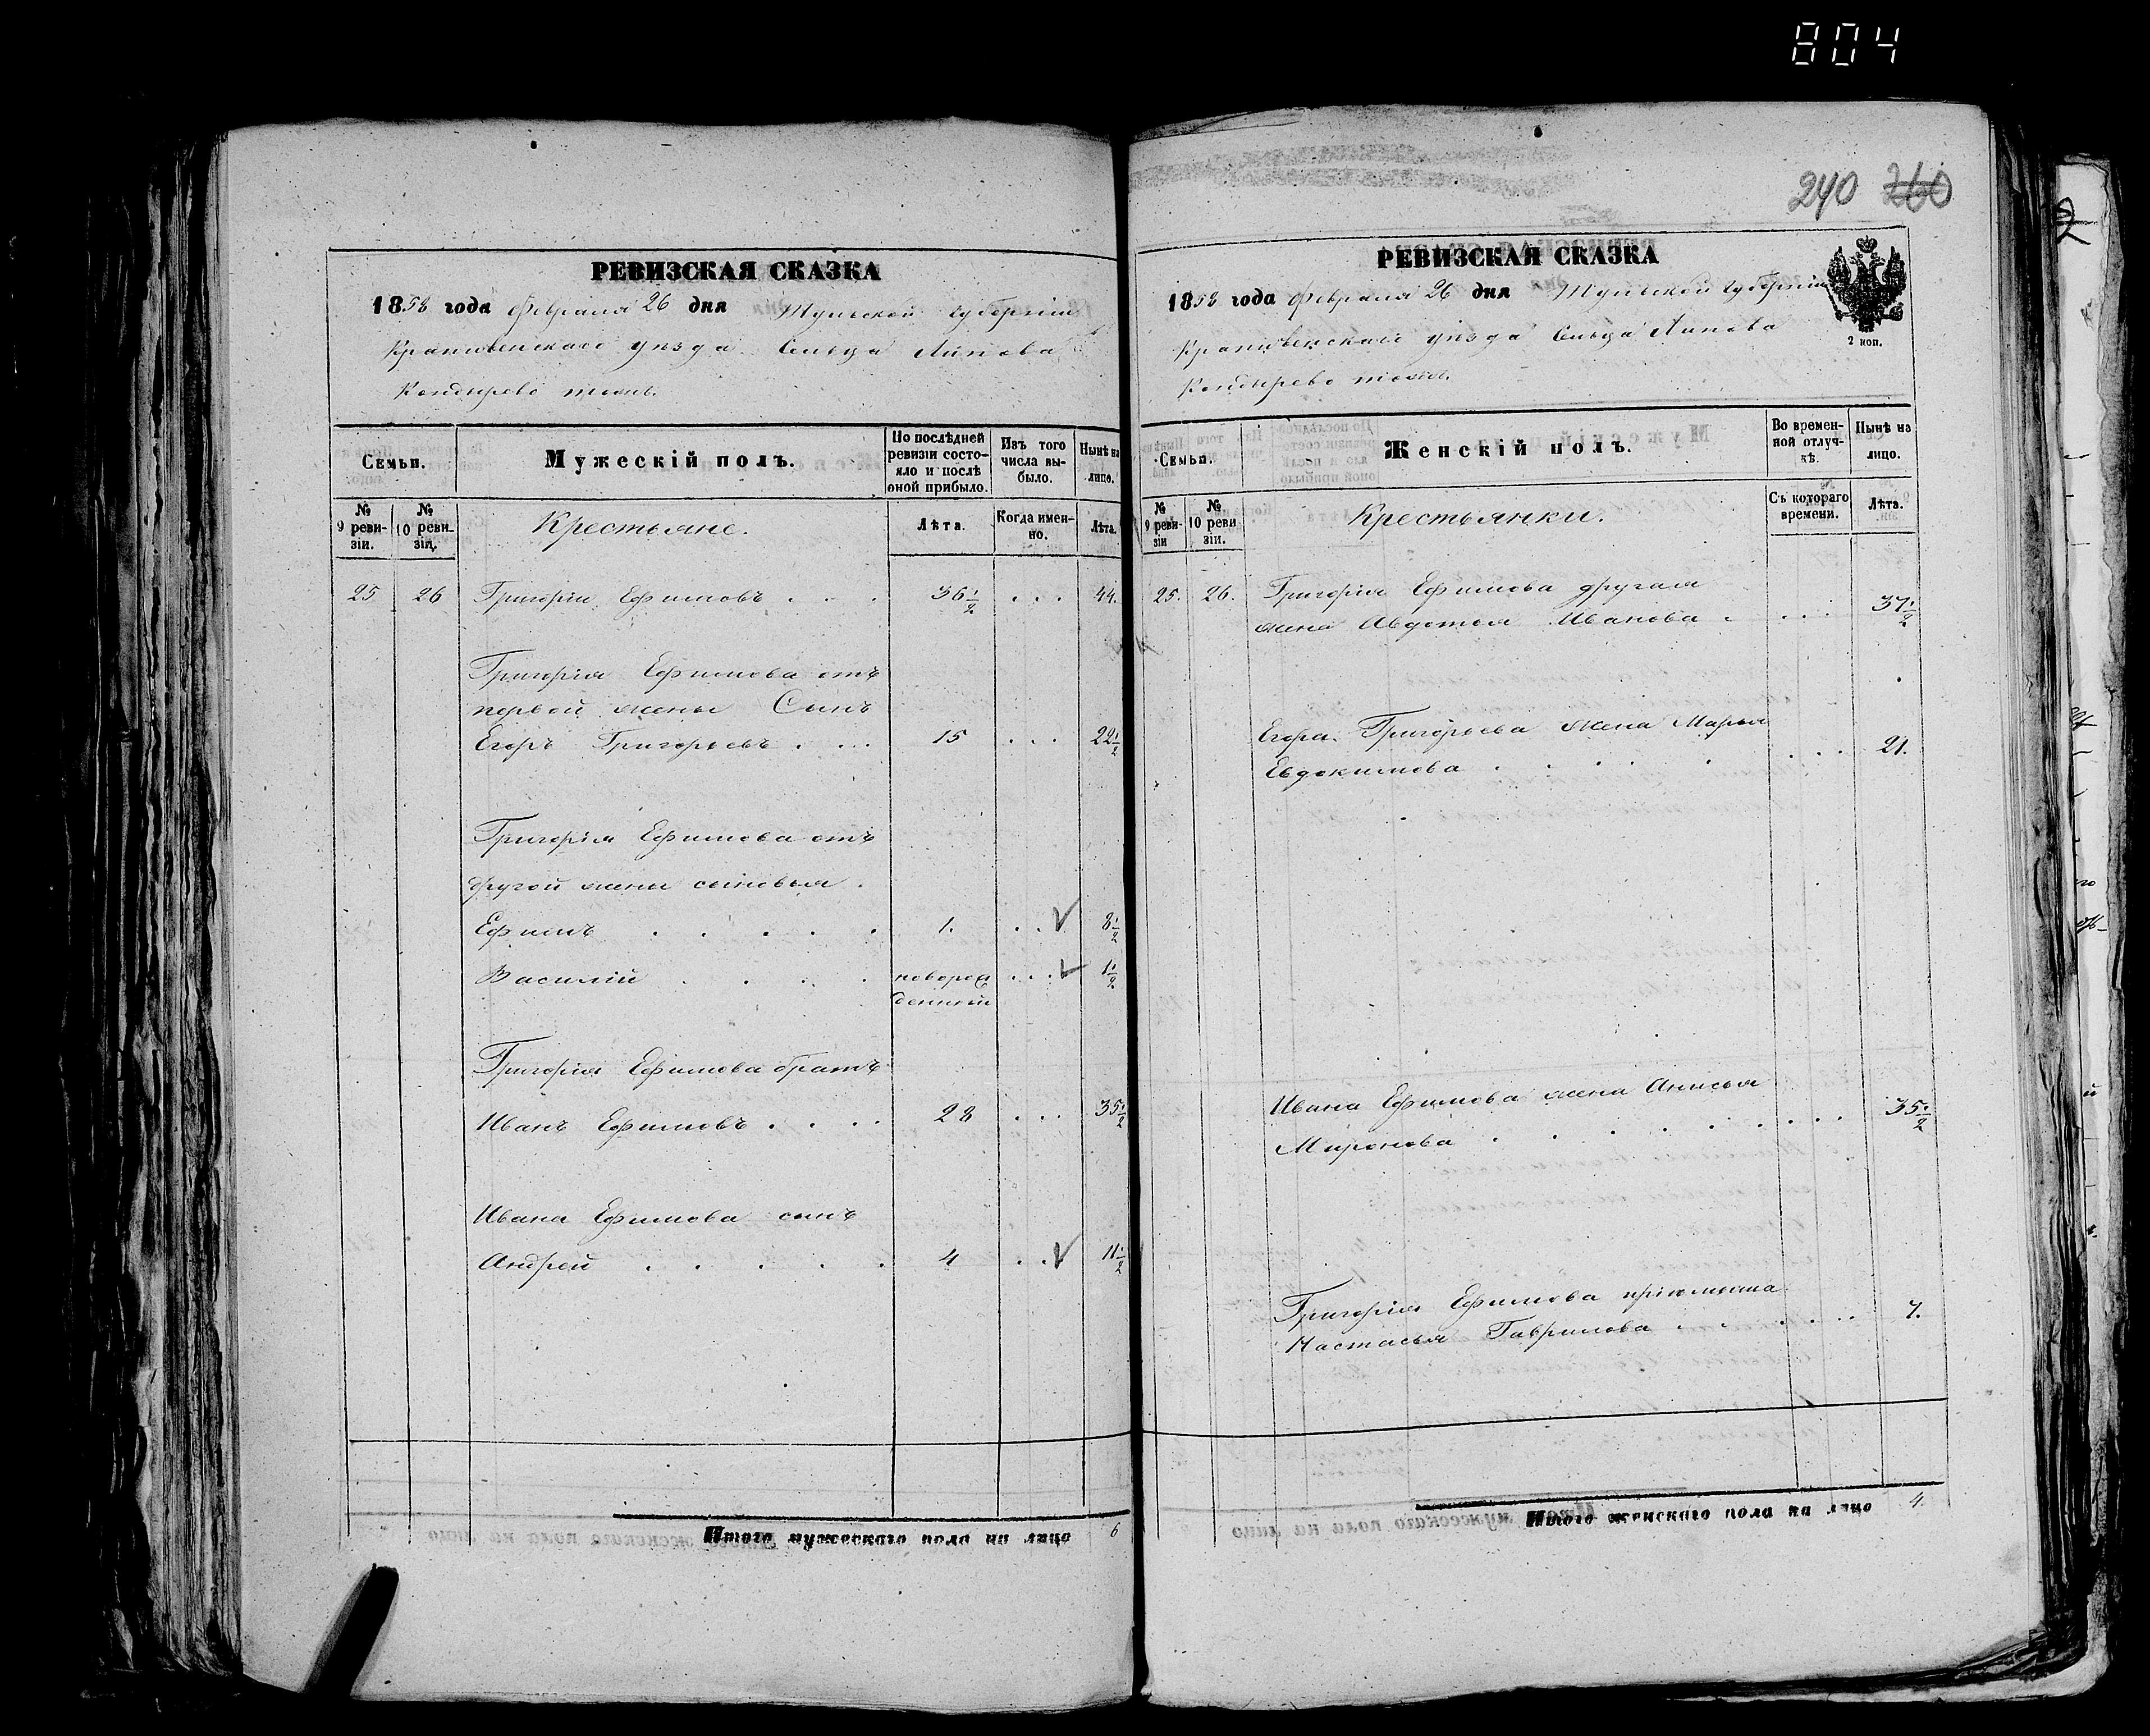 804
240 260
РЕВИЗСКАЯ СКАЗКА
1858 года Февраля 26 дня Тульской губерніи
Крапивенскаго уѣзда Сельца Липова
Кондырево тожъ.
Семьи.
Мужескій полъ.
По послѣдней ревизіи состояло и послѣ оной прибыло.
Изъ того числа выбыло.
Нынѣ на лицо.
№ 9 ревизіи.
№ 10 ревизіи.
Крестьяне.
Лѣта.
Когда именно.
Лѣта.
25 26 Григорій Ефимовъ . . . 36½ . . . 44.
Григорія Ефимова отъ
первой жены Сынъ
Егоръ Григорьевъ . . . 15 . . . 22½
Григорія Ефимова отъ
другой жены сыновья .
Ефимъ . . . . . 1. . . √ 8½
Василій . . . . новорож . . . √ 1½
денный
Григорія Ефимова братъ
Иванъ Ефимовъ . . . . 28 . . . 35½
Ивана Ефимова сынъ
Андрей . . . . . 4 . . √ 11½
Итого мужескаго пола на лицо 6
РЕВИЗСКАЯ СКАЗКА
1858 года Февраля 26 дня Тульской губерніи
Крапивенскаго уѣзда Сельца Липова
Кондырево тожъ.
2 коп.
Семьи.
Женскій полъ.
Во временной отлучкѣ.
Нынѣ на лицо.
№ 9 ревизіи
№ 10 ревизіи.
Крестьянки.
Съ котораго времени.
Лѣта.
25. 26. Григорія Ефимова другая
жена Авдотья Иванова . . . . 37½
Егора Григорьева жена Марья
Евдокимова . . . . . . . . 21.
Ивана Ефимова жена Анисья
Миронова . . . . . . . . . 35½
Григорія Ефимова пріемыша
Настасья Гаврилова . . . . . . 7.
Итого женскаго пола на лицо 4.